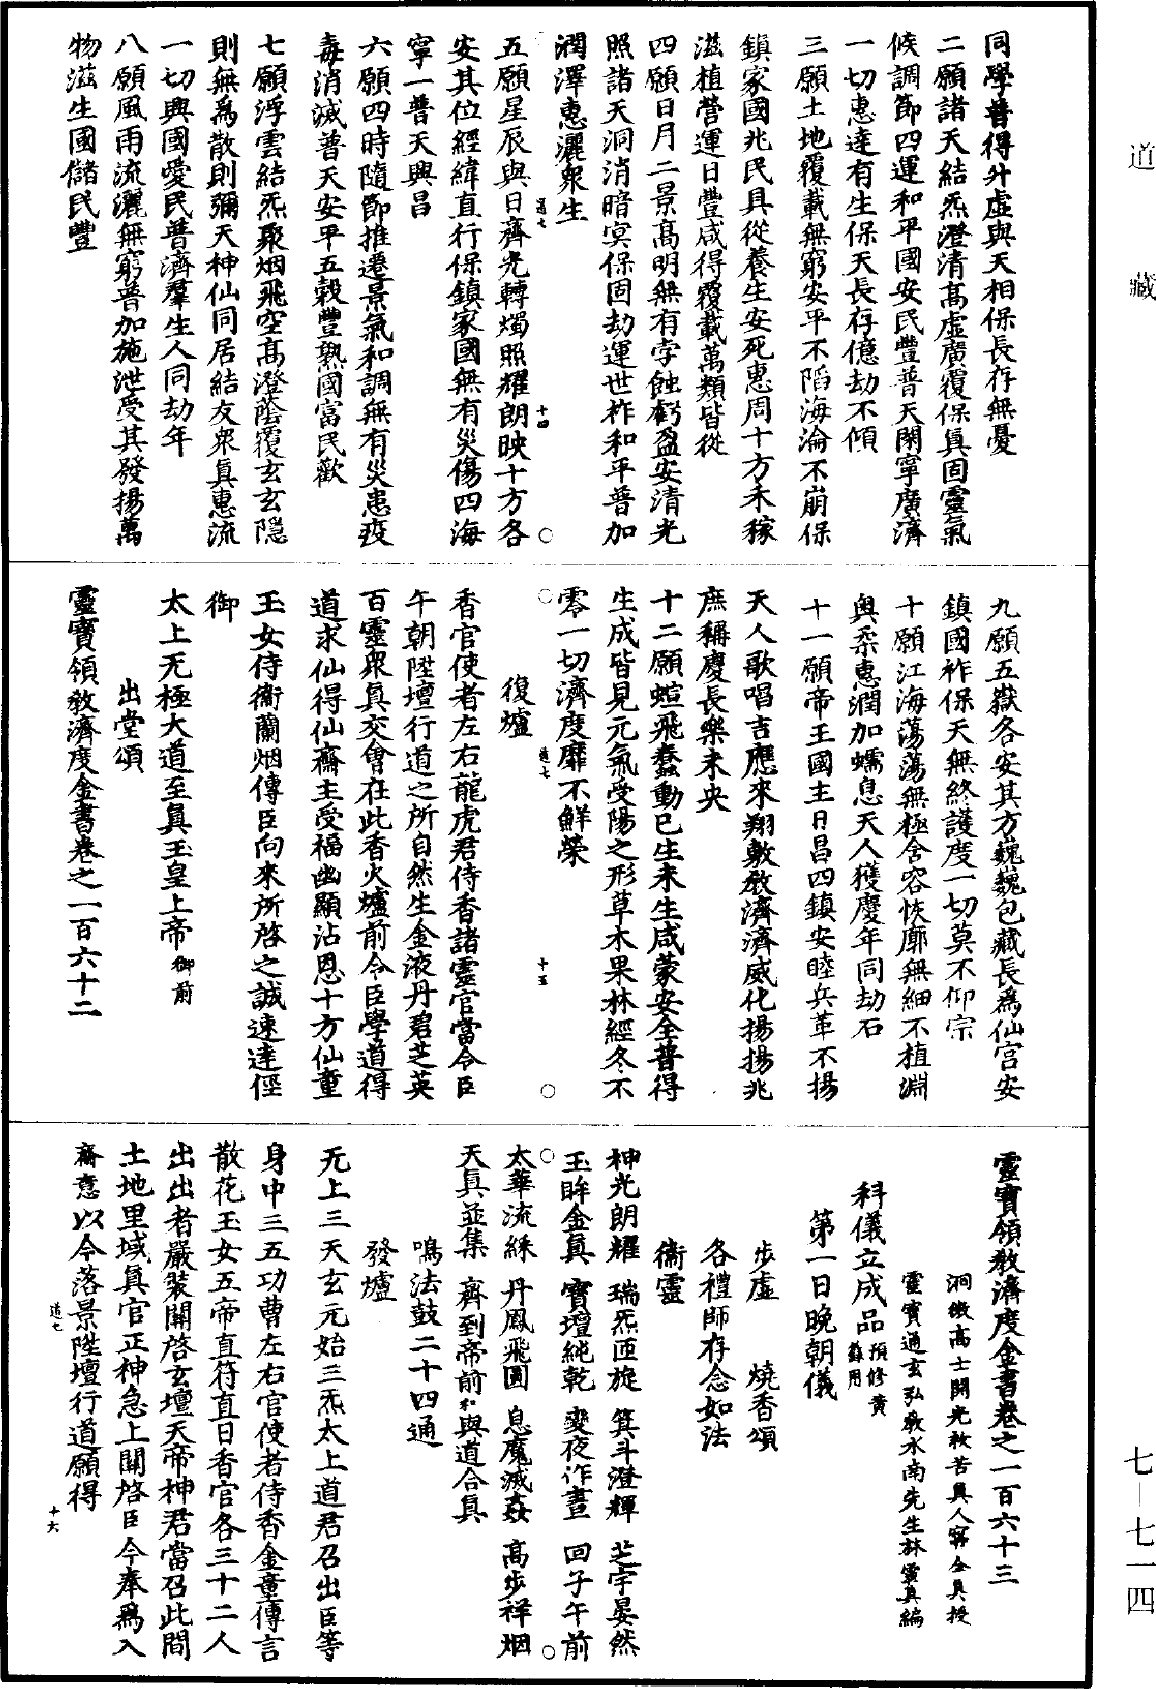 道藏
同學普得升虛與天相保長存無憂
二願諸天結炁澄清高虛廣覆保真固靈氣
候調節四運和平國安民豐普天閑寧廣濟
一切惠達有生保天長存億劫不傾
三願土地覆載無窮安平不陷海淪不崩保
鎮家國兆民具從養生安死惠周十方禾稼
滋植營運日豐咸得覆載萬類皆從
四願日月二景高明無有孛蝕虧盈安清光
照諸天洞消暗冥保固劫運世祚和平普加
潤澤惠灑衆生
道七 十四
五願星辰與日齊光轉燭照耀朗映十方各
安其位經緯直行保鎮家國無有災傷四海
寧一普天興昌
六願四時隨節推遷景氣和調無有災患疫
毒消滅普天安平五穀豐熟國富民歡
七願浮雲結炁聚烟飛空高澄蔭覆玄玄隱
則無爲散則彌天神仙同居結友衆真惠流
一切興國愛民普濟羣生人同劫年
八願風雨流灑無窮普加施泄受其發揚萬
物滋生國儲民豐
九願五嶽各安其方巍巍包藏長爲仙宮安
鎮國祚保天無終護度一切莫不仰宗
十願江海蕩蕩無極含容恢廓無細不植淵
奧柔惠潤加蠕息天人獲慶年同劫石
十一願帝王國主日昌四鎮安睦兵革不揚
天人歌唱吉應來翔敷教濟濟威化揚揚兆
庶稱慶長樂未央
十二願蝖飛蠢動已生未生咸蒙安全普得
生成皆見元氣受陽之形草木果林經冬不
零一切濟度靡不鮮榮
道七 十五
復爐
香官使者左右龍虎君侍香諸靈官當令臣
午朝陞壇行道之所自然生金液丹碧芝英
百靈衆真交會在此香火爐前令臣學道得
道求仙得仙齋主受福幽顯沾恩十方仙童
玉女侍衞蘭烟傳臣向來所啓之誠速達徑
御
太上无極大道至真玉皇上帝御前
出堂頌
靈寶領教濟度金書卷之一百六十二
靈寶領教濟度金書卷之一百六十三
洞微高士開光救苦真人甯全真授
靈寶通玄弘教水南先生林靈真編
科儀立成品預修黃籙用
第一日晚朝儀
步虛 燒香頌
各禮師存念如法
衞靈
神光朗耀 瑞炁匝旋 箕斗澄輝 芝宇晏然
玉眸金真 寶壇純乾 變夜作晝 回子午前
太華流綵 丹鳳飛圓 息魔滅姦 高步祥烟
天真並集 齊到帝前和與道合真
鳴法鼓二十四通
發爐
无上三天玄元始三炁太上道君召出臣等
身中三五功曹左右官使者侍香金童傳言
散花玉女五帝直符直日香官各三十二人
出出者嚴裝關啓玄壇天帝神君當召此間
土地里域真官正神急上關啓臣今奉爲入
齋意以今落景陞壇行道願得
道七 十六
七—七一四